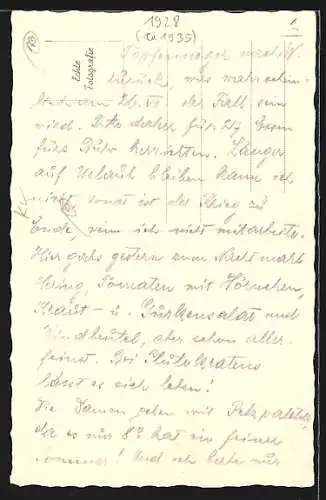 1928
(ca 1935)
1
Echte
Fotografie
zurück, was wahrschein-
lich am 26. VI. der Fall sein
wird. Bitte daher für 27. Essen
fürs Büro herrichten. Länger
auf Urlaub bleiben kann ich
nicht, sonst ist der Krieg zu
Ende, wenn ich nicht mitarbeite.
Hier gabs gestern zum Nachtmahl
Hering, Tomaten mit Hörnchen,
Kraut- u. Gurkensalat und
Windbeutel, aber schon aller-
feinst. Bei
lässt es sich leben!
Die Damen gehen mit Pelzpaletot,
da es nur 8° hat ein feiner
Sommer! Und ich hatte nur